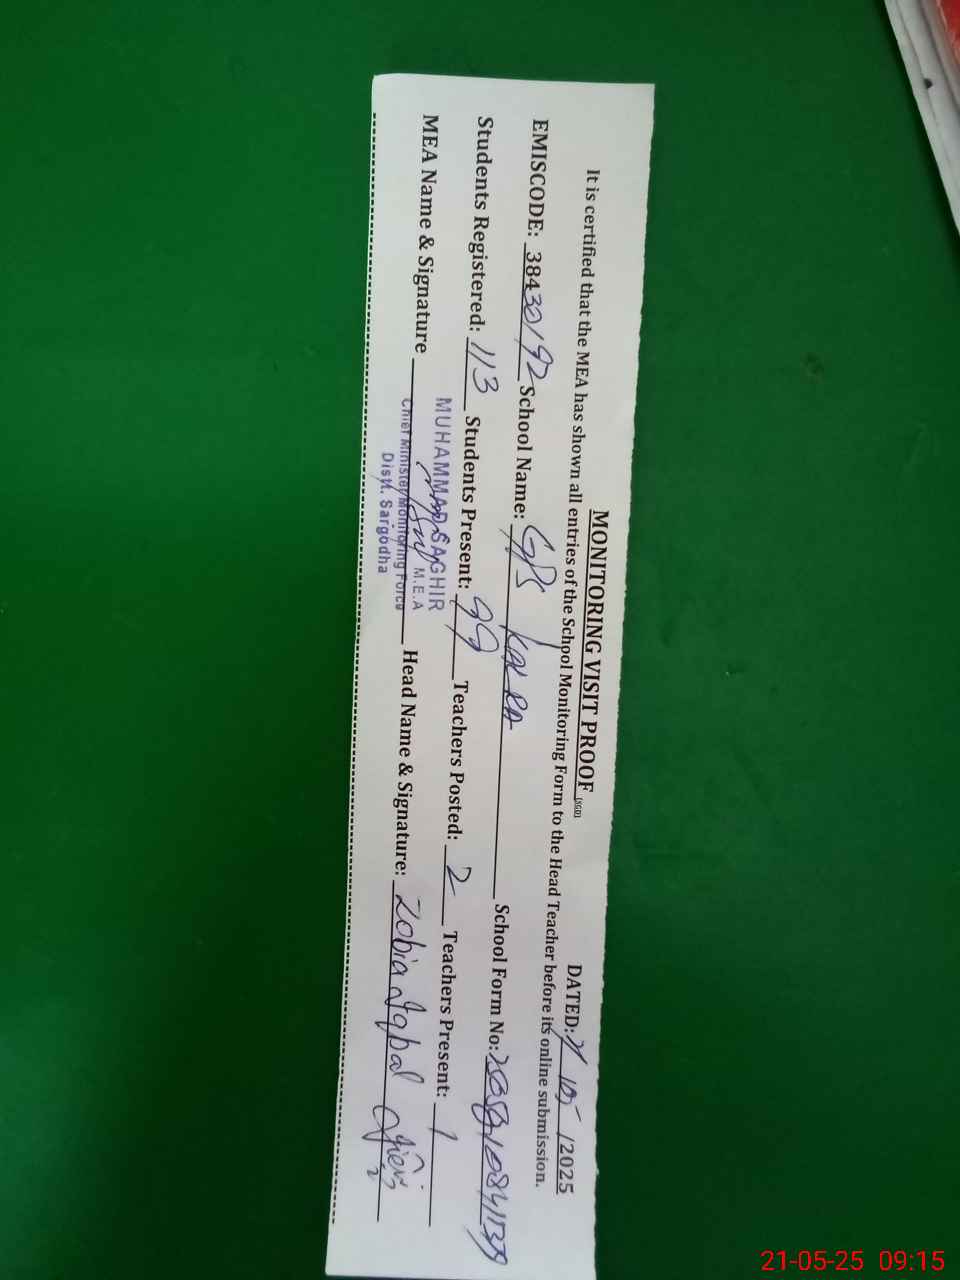 MONITORING VISIT PROOF (SGD)
DATED: 21/05/2025
It is certified that the MEA has shown all entries of the School Monitoring Form to the Head Teacher before its online submission.
EMISCODE: 38430192 School Name: GPS School Form No:
Students Registered: 113 Students Present: 99 Teachers Posted: 2 Teachers Present: 1
MEA Name & Signature Head Name & Signature: Zobia Iqbal
MUHAMMAD SAGHIR
M.E.A
Chief Minister Monitoring Force
Distt. Sargodha
21-05-25 09:15